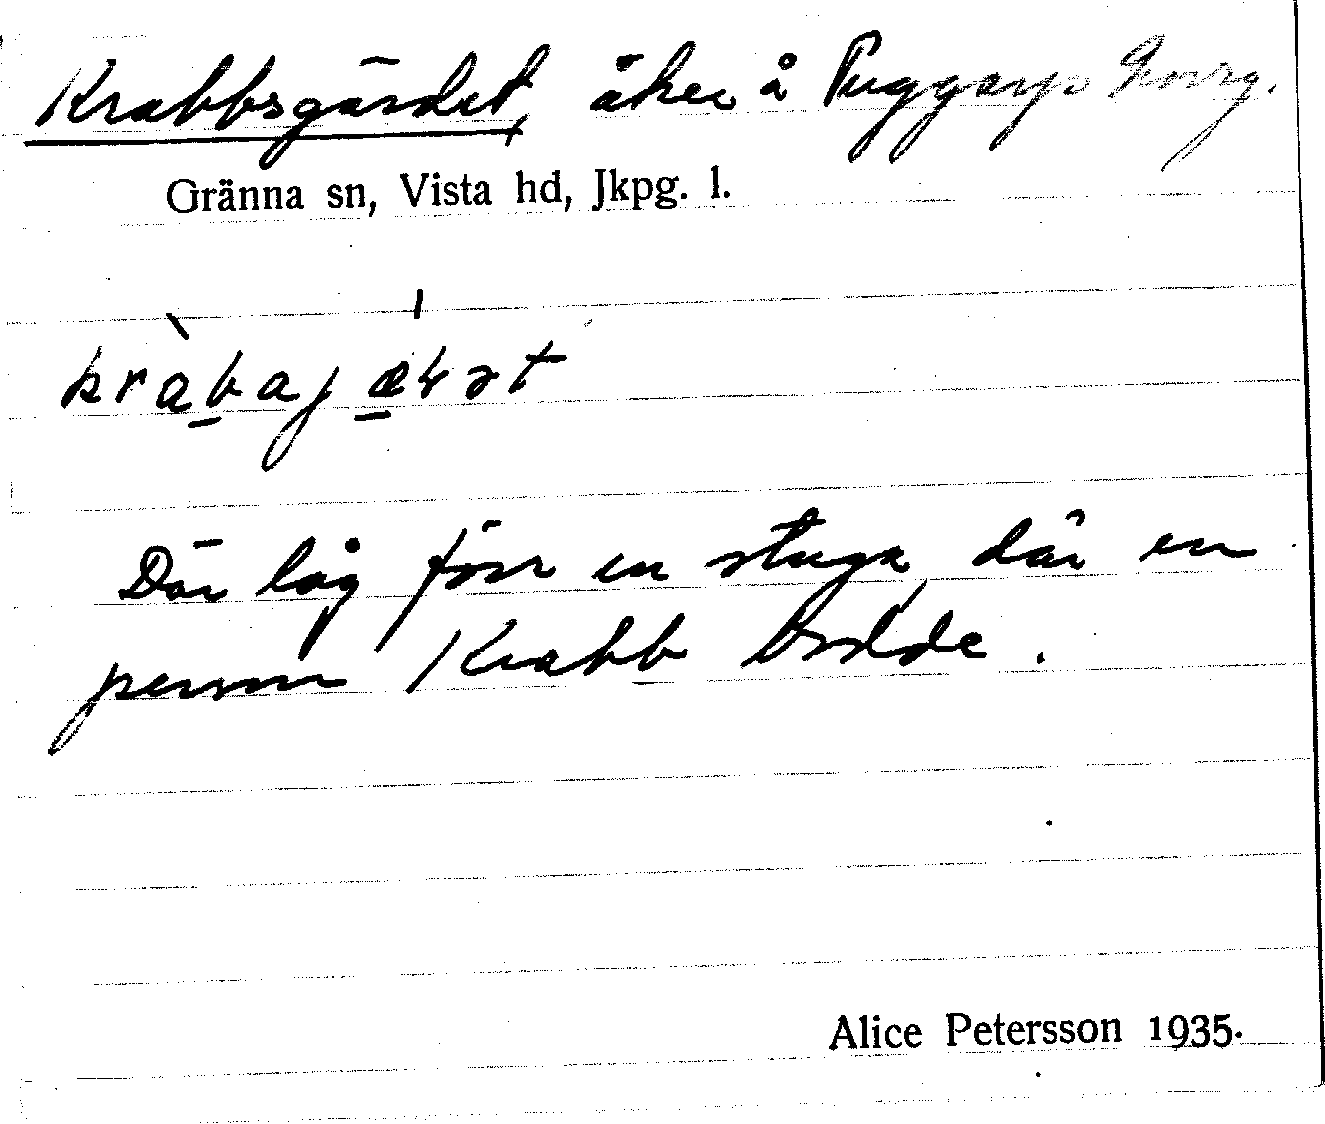 Krabbsgärdet, åker å Puggarp
Gränna sn, Vista hd, Jkpg. l.
Där låg förr en stuga, där en
person Krabb bodde.
Alice Petersson 1935.